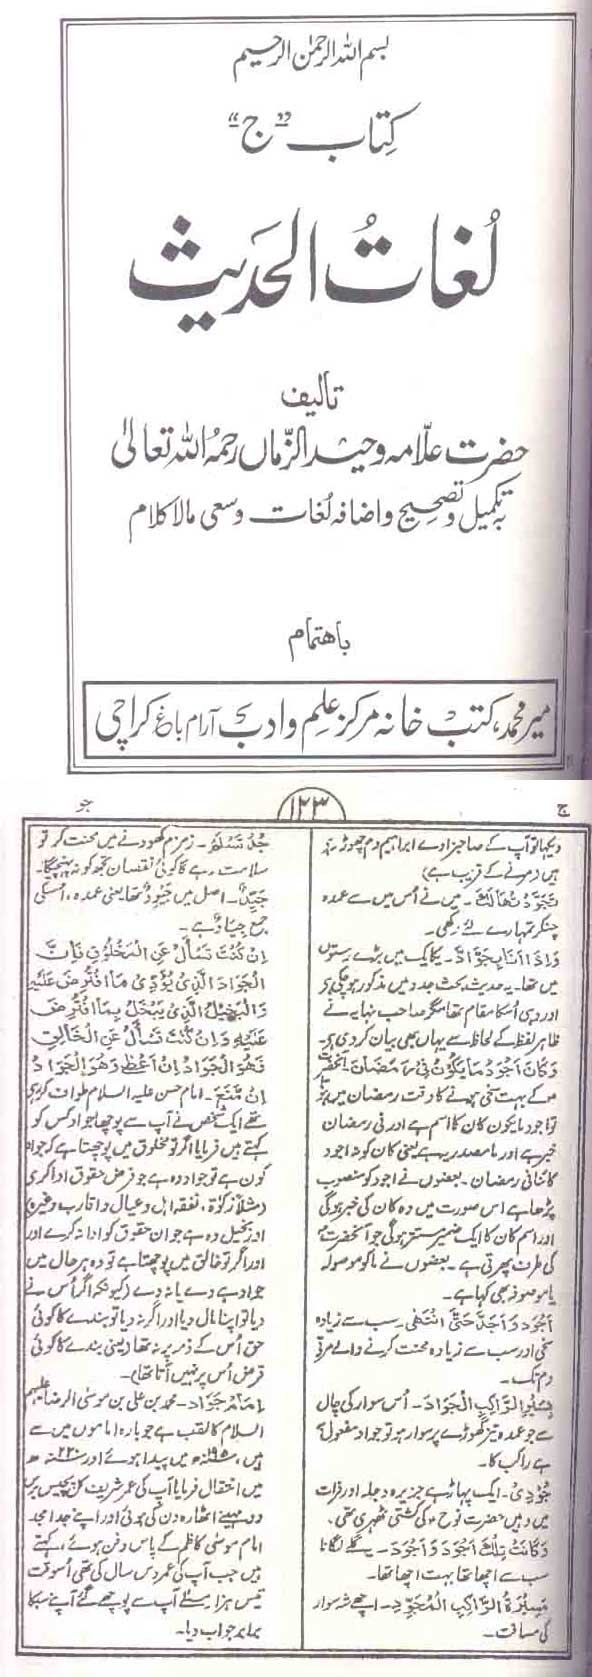 بسم اللہ الرحمٰن الرحیم
کتاب "ج"
لُغاتُ الحَدیث
تالیف
حضرت علّامہ وحید الزّماں رحمہُ اللہ تعالیٰ
بہ تکمیل و تصحیح و اضافہ لُغات و سعی مالا کلام
باھتمام
میر محمد، کتب خانہ مرکز علم و ادب آرام باغ کراچی
ج
۱۲۳
جو
دیکھا تو آپ کے صاحبزادے ابراہیم دم چھوڑ رہے
ہیں (مرنے کے قریب ہے)
تَجَوَّدْتُهَا لَكَ۔ میں نے اُس میں سے عمدہ
چنکر تمہارے لئے رکھی۔
وَاِذَا اَنَا بِجَوَادَّ۔ یکایک میں بڑے رستوں
میں تھا۔ یہ حدیث بحث جدد میں مذکور ہو چکی ہے
اور وہی اُسکا مقام تھا مگر صاحب نہایہ نے
ظاہر لفظ کے لحاظ سے یہاں بھی بیان کر دی ہے۔
وَكَانَ اَجْوَدُ مَا يَكُوْنُ فِيْ رَمَضَانَ۔ آنحضرت
کے بہت سخی ہونے کا وقت رمضان میں ہوتا
تو اجود ما یکون کان کا اسم ہے اور فی رمضان
خبر ہے اور ما مصدریہ ہے یعنی کان کونہ اجود
کائنا فی رمضان۔ بعضوں نے اجود کو منصوب
پڑھا ہے اس صورت میں وہ کان کی خبر ہوگی
اور اسم کان کا ایک ضمیر مستتر ہوگی جو آنحضرتؐ
کی طرف پھرتی ہے۔ بعضوں نے ما کو موصولہ
یا موصوفہ بھی کہا ہے۔
اَجْوَدَ وَ اَجَدَّ حَتَّى انْتَهٰى۔ سب سے زیادہ
سخی اور سب سے زیادہ محنت کرنے والے مرتے
دم تک۔
سَيْرَ الرَّاكِبِ الْجَوَادَ۔ اُس سوار کی چال
سے جو عمدہ تیز گھوڑے پر سوار ہو تو جواد مفعول
ہے راکب کا۔
جُوْدِيْ۔ ایک پہاڑ ہے جزیرہ دجلہ اور فرات
میں وہیں حضرت نوح کی کشتی ٹھہری تھی۔
وَكَانَتْ تِلْكَ اَجْوَدَ وَاَجْوَدَ۔
سب سے اچھا تھا بہت اچھا تھا۔
مَسِيْرَةُ الرَّاكِبِ الْمُجَوِّدِ۔ اچھے شہ سوار
کی مسافت۔
جُدْ تَسْلَمْ۔ زمزم کھودنے میں محنت کر تو
سلامت رہے گا کوئی نقصان تجھ کو نہ پہنچیگا۔
جَيِّدٌ۔ اصل میں جَيْوِدٌ تھا یعنی عمدہ، اُسکی
جمع جِیَادٌ ہے۔
اِنْ كُنْتَ تَسْأَلُ عَنِ الْمَخْلُوْقِ فَاِنَّ
الْجَوَادَ الَّذِيْ يُؤَدِّيْ مَا افْتُرِضَ عَلَيْهِ
وَالْبَخِيْلُ الَّذِيْ يَبْخَلُ بِمَا افْتُرِضَ
عَلَيْهِ وَاِنْ كُنْتَ تَسْأَلُ عَنِ الْخَالِقِ
فَهُوَ الْجَوَادُ اِنْ اَعْطٰى وَهُوَ الْجَوَادُ
اِنْ مَنَعَ۔ امام حسن علیہ السلام طواف کر رہے
تھے ایک شخص نے آپ سے پوچھا جواد کس کو
کہتے ہیں فرمایا اگر تو مخلوق میں پوچھتا ہے کہ جواد
کون ہے تو جواد وہ ہے جو فرض حقوق ادا کرے
(مثلاً زکوٰۃ، نفقہ اہل و عیال و اقارب وغیرہ)
اور بخیل وہ ہے جو ان حقوق کو ادا نہ کرے اور
اور اگر تو خالق میں پوچھتا ہے تو وہ ہر حال میں
جواد ہے دے یا نہ دے (کیونکہ اگر اُس نے
دیا تو اپنا مال دیا اور اگر نہ دیا تو بندے کا کوئی
حق اُس کے ذمہ پر نہ تھا (یعنی بندے کا کوئی
قرض اُس پر نہیں آتا تھا)۔
اِمَامْ جَوَاد۔ محمد بن علی بن موسی الرضا علیہم
السلام کا لقب ہے جو بارہ اماموں میں سے
ہیں، ۱۹۵ھ میں پیدا ہوئے اور ۲۲۰ھ
میں انتقال فرمایا آپ کی عمر شریف کل پچیس برس
دو مہینے اٹھارہ دن کی ہوئی اور اپنے جد امجد
امام موسٰی کاظم کے پاس دفن ہوئے، کہتے
ہیں جب آپ کی عمر دس سال کی تھی اُسوقت
تیس ہزار مسئلے آپ سے پوچھے گئے آپنے سبکا
برابر جواب دیا۔